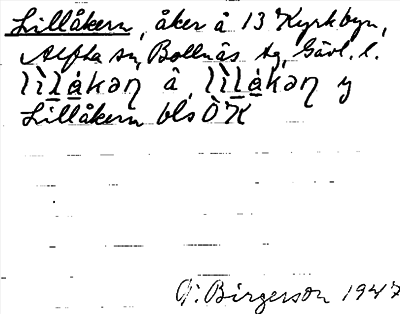 Lillåkern, åker å 13 Kyrkbyn,
Alfta sn, Bollnäs tg, Gävl. l.
lìlákəɳ å, lìlákəɳ y
Lillåkern bls ÖK
G. Birgerson 1947